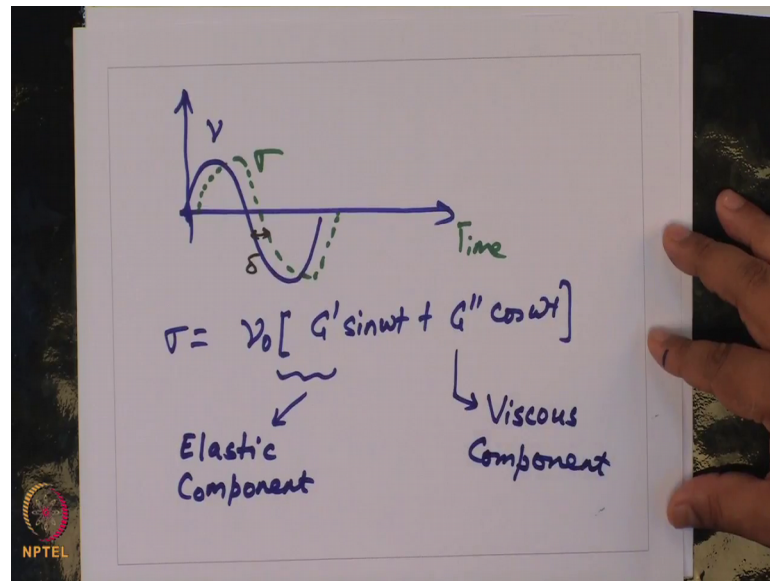 ν
σ
δ
Time
σ = ν₀ [ G' sinωt + G'' cosωt ]
Elastic
Component
Viscous
Component
NPTEL